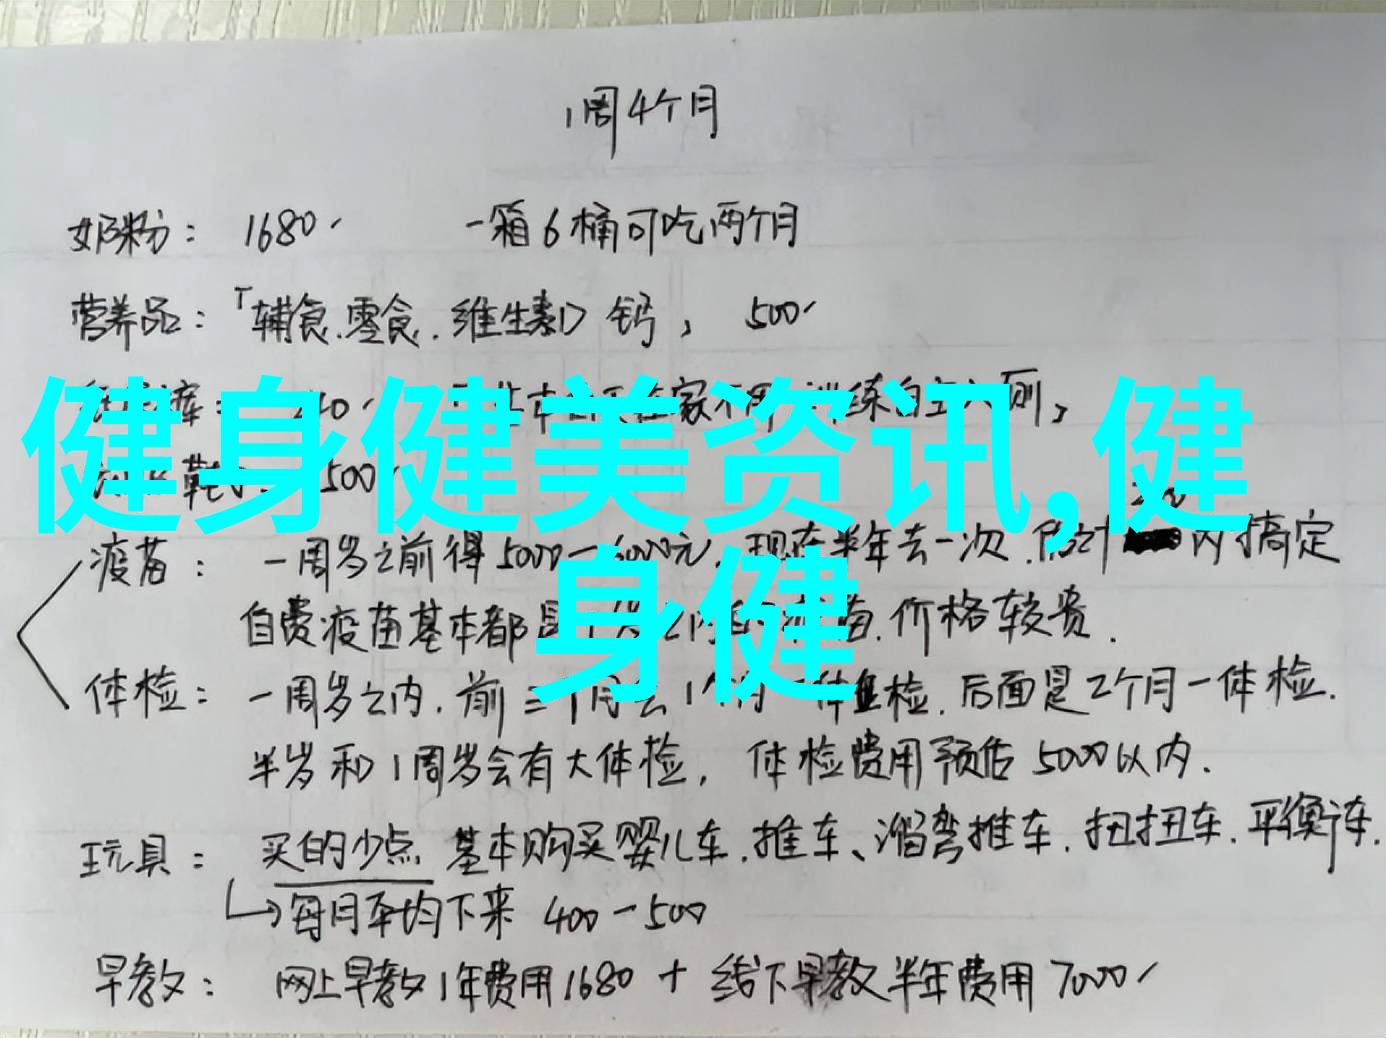 1周4个月
奶粉: 1680 一箱6桶可吃两个月
营养品:「辅食.零食.维生素D 钙, 500
健身健美资讯,健
身健
500
疫苗: 一周岁之前得5000-6000元,现在半年去一次. 内搞定
自费疫苗基本都是 价格较贵.
体检: 一周岁之内.前三个月去1个月一体检.后面是2个月一体检.
半岁和1周岁会有大体检, 体检费用预估5000以内.
玩具: 买的少点 基本购买婴儿车.推车、溜弯推车.扭扭车.平衡车.
每月平均下来 400-500
早教: 网上早教1年费用1680 + 线下早教半年费用7000